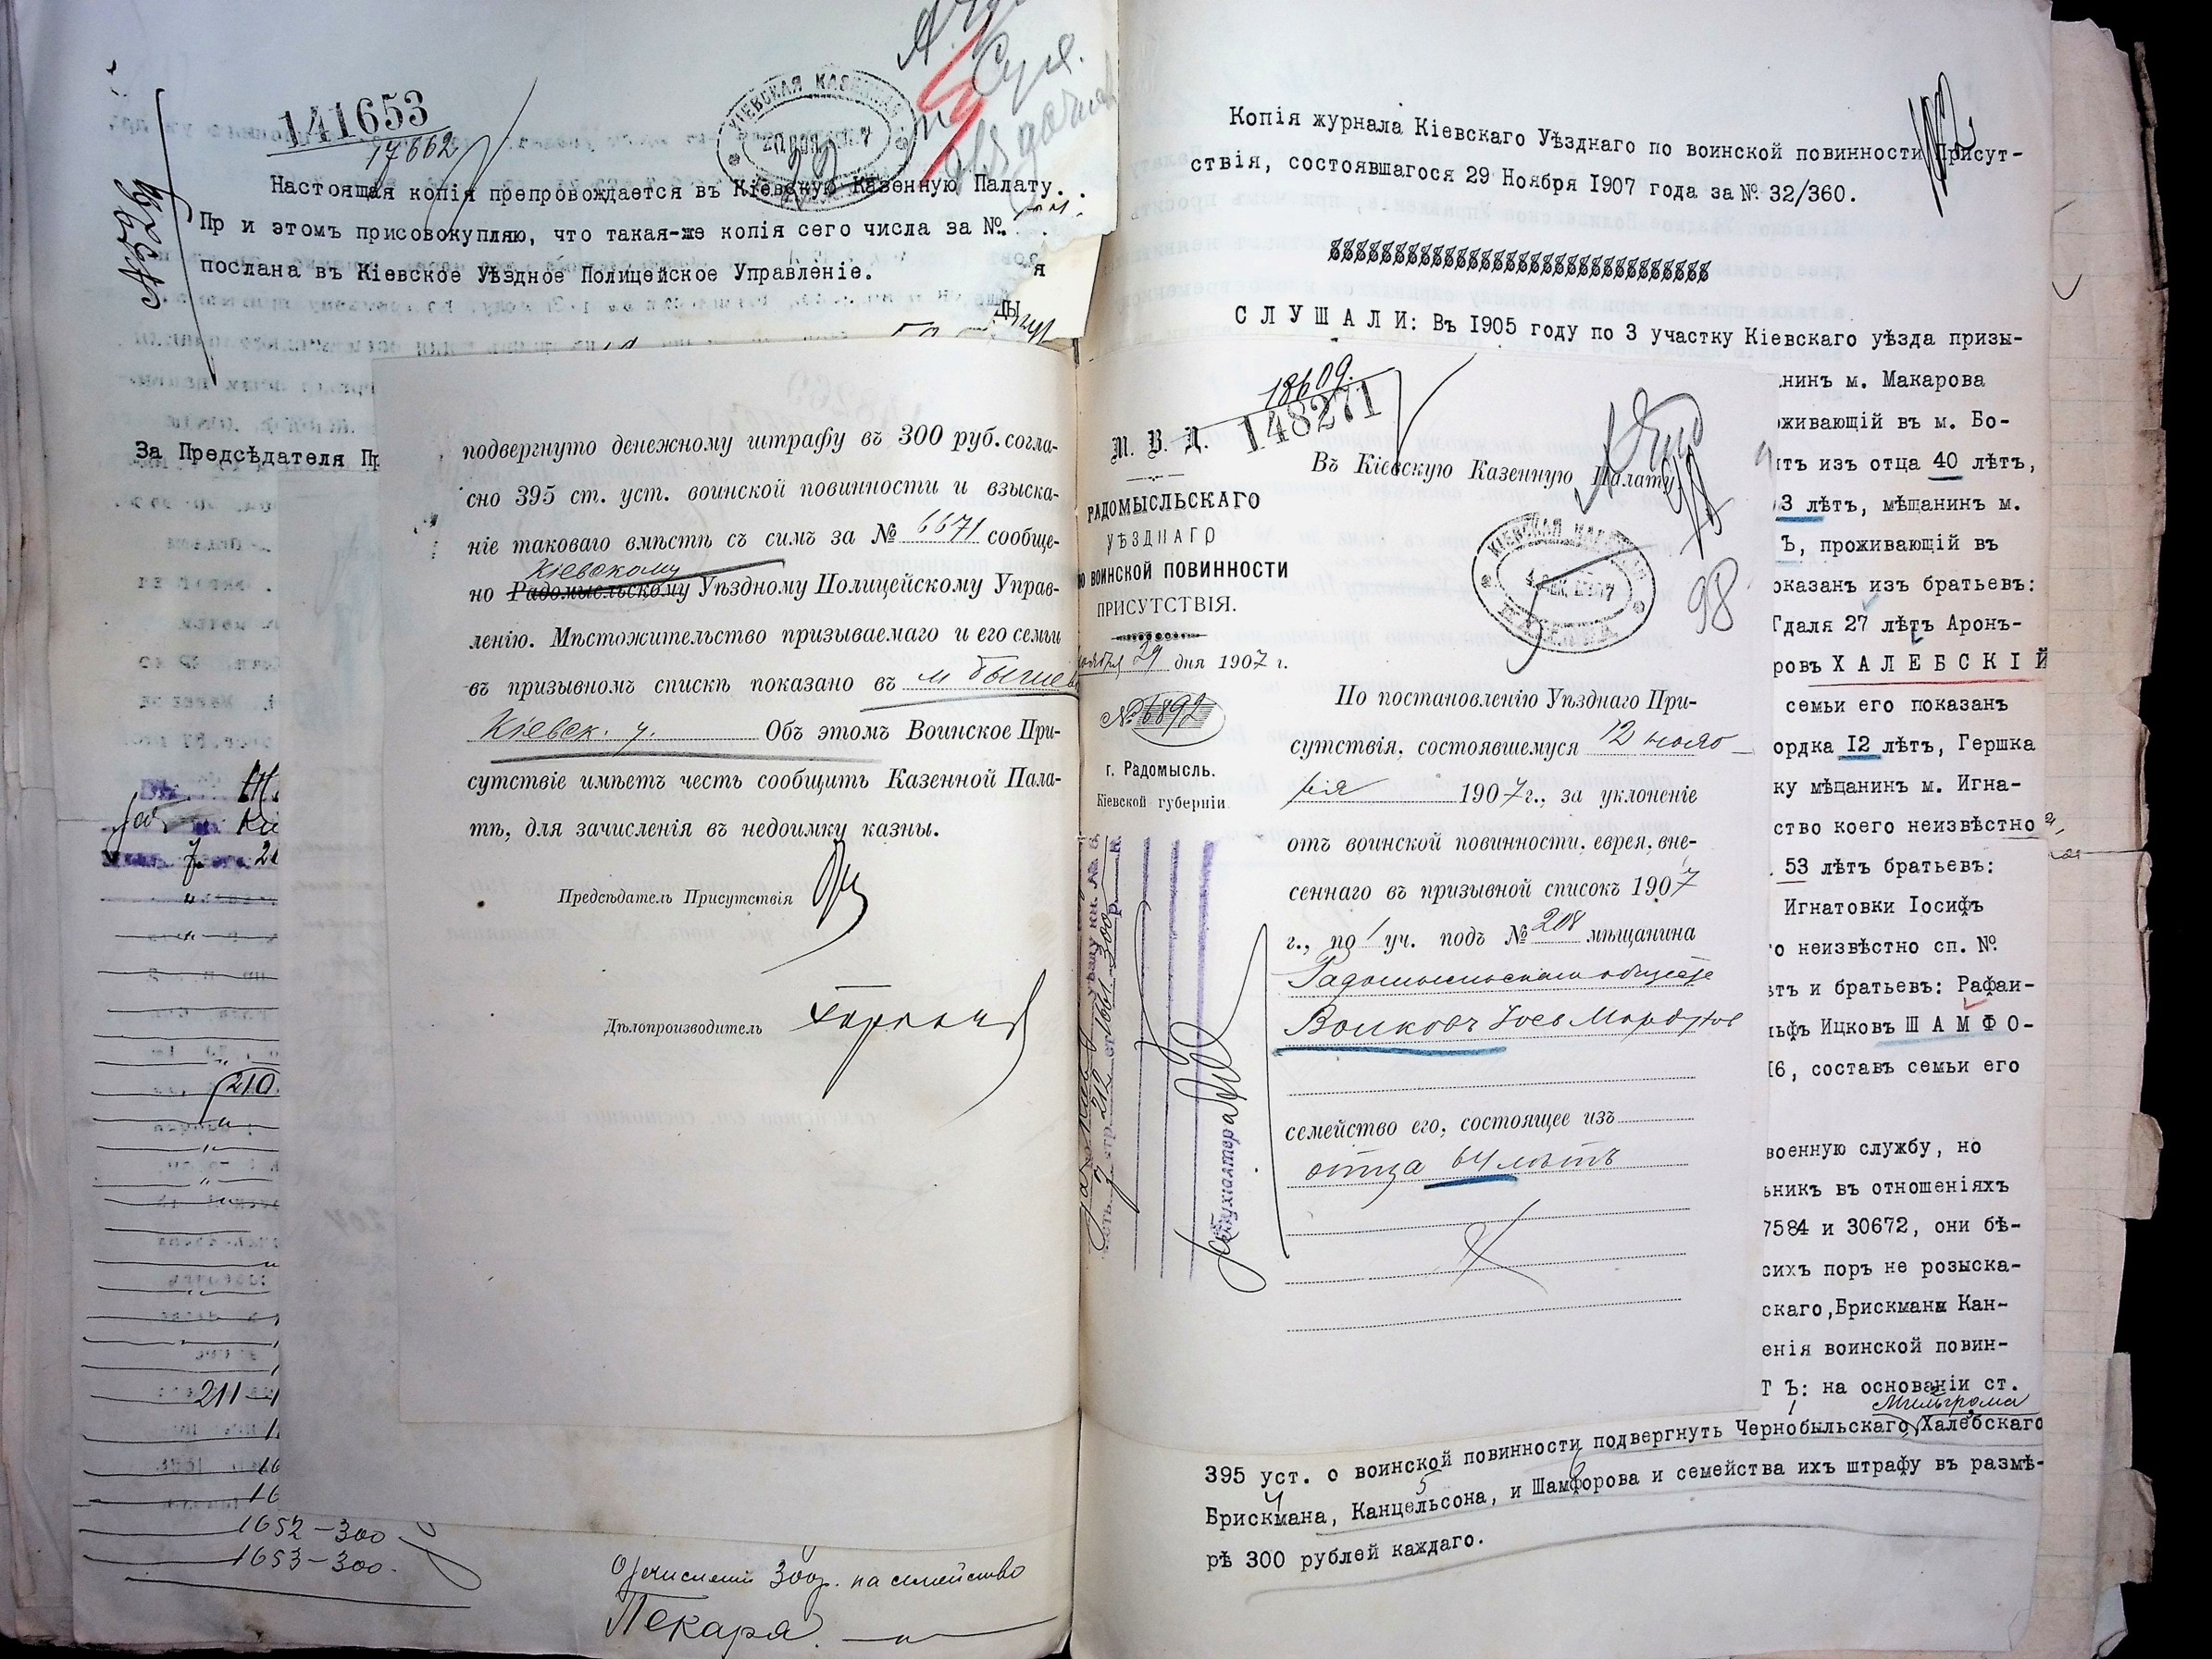 141653
17662
КІЕВСКАЯ КАЗЕННАЯ
Настоящая копія препровождается въ Кіевскую Казенную Палату.
Пр и этомъ присовокупляю, что такая-же копія сего числа за №
послана въ Кіевское Уѣздное Полицейское Управленіе.
я
ды
За Предсѣдателя Пр
210
211
1652-300
1653-300.
300р. на семейство
Пекаря.
подвергнуто денежному штрафу въ 300 руб. согла-
сно 395 ст. уст. воинской повинности и взыска-
ніе таковаго вмѣстѣ съ симъ за № 6671 сообще-
Кіевскому
но Радомысльскому Уѣздному Полицейскому Управ-
ленію. Мѣстожительство призываемаго и его семьи
въ призывномъ спискѣ показано въ м Бышев
Кіевск. у. Объ этомъ Воинское При-
сутствіе имѣетъ честь сообщить Казенной Пала-
тѣ, для зачисленія въ недоимку казны.
Предсѣдатель Присутствія
Дѣлопроизводитель
Копія журнала Кіевскаго Уѣзднаго по воинской повинности Присут-
ствія, состоявшагося 29 Ноября 1907 года за № 32/360.
С Л У Ш А Л И: Въ 1905 году по 3 участку Кіевскаго уѣзда призы-
18609.
148271
М. В. Д.
РАДОМЫСЛЬСКАГО
УѢЗДНАГО
по ВОИНСКОЙ ПОВИННОСТИ
ПРИСУТСТВІЯ.
ноября 29 дня 1907 г.
№ 6892
г. Радомысль.
Кіевской губерніи.
Въ Кіевскую Казенную Палату
КІЕВСКАЯ КАЗЕННАЯ
98
По постановленію Уѣзднаго При-
сутствія, состоявшемуся 12 нояб-
ря 1907 г., за уклоненіе
отъ воинской повинности, еврея, вне-
сеннаго въ призывной списокъ 1907
г., по 1 уч. подъ № 208 мѣщанина
Радомысльскаго общества
Волковъ Зось Мордков
семейство его, состоящее изъ
отца 64 лѣтъ
Бухгалтера
нинъ м. Макарова
оживающій въ м. Бо-
итъ изъ отца 40 лѣтъ,
3 лѣтъ, мѣщанинъ м.
Ъ, проживающій въ
оказан изъ братьевъ:
Гдаля 27 лѣтъ Аронъ-
ровъ Х А Л Е Б С К І Й
семьи его показан
ордка 12 лѣтъ, Гершка
ку мѣщанин м. Игна-
ство коего неизвѣстно
53 лѣтъ братьевъ:
Игнатовки Іосифъ
о неизвѣстно сп. №
ѣтъ и братьевъ: Рафаи-
льфъ Ицковъ Ш А М Ф О-
16, составъ семьи его
военную службу, но
ьникъ въ отношеніяхъ
7584 и 30672, они бѣ-
сихъ поръ не розыска-
скаго, Брискмана Кан-
енія воинской повин-
Т Ъ: на основаніи ст.
Мильгрома
395 уст. о воинской повинности подвергнуть Чернобыльскаго, Халебскаго
Брискмана, Канцельсона, и Шамфорова и семейства ихъ штрафу въ размѣ-
рѣ 300 рублей каждаго.